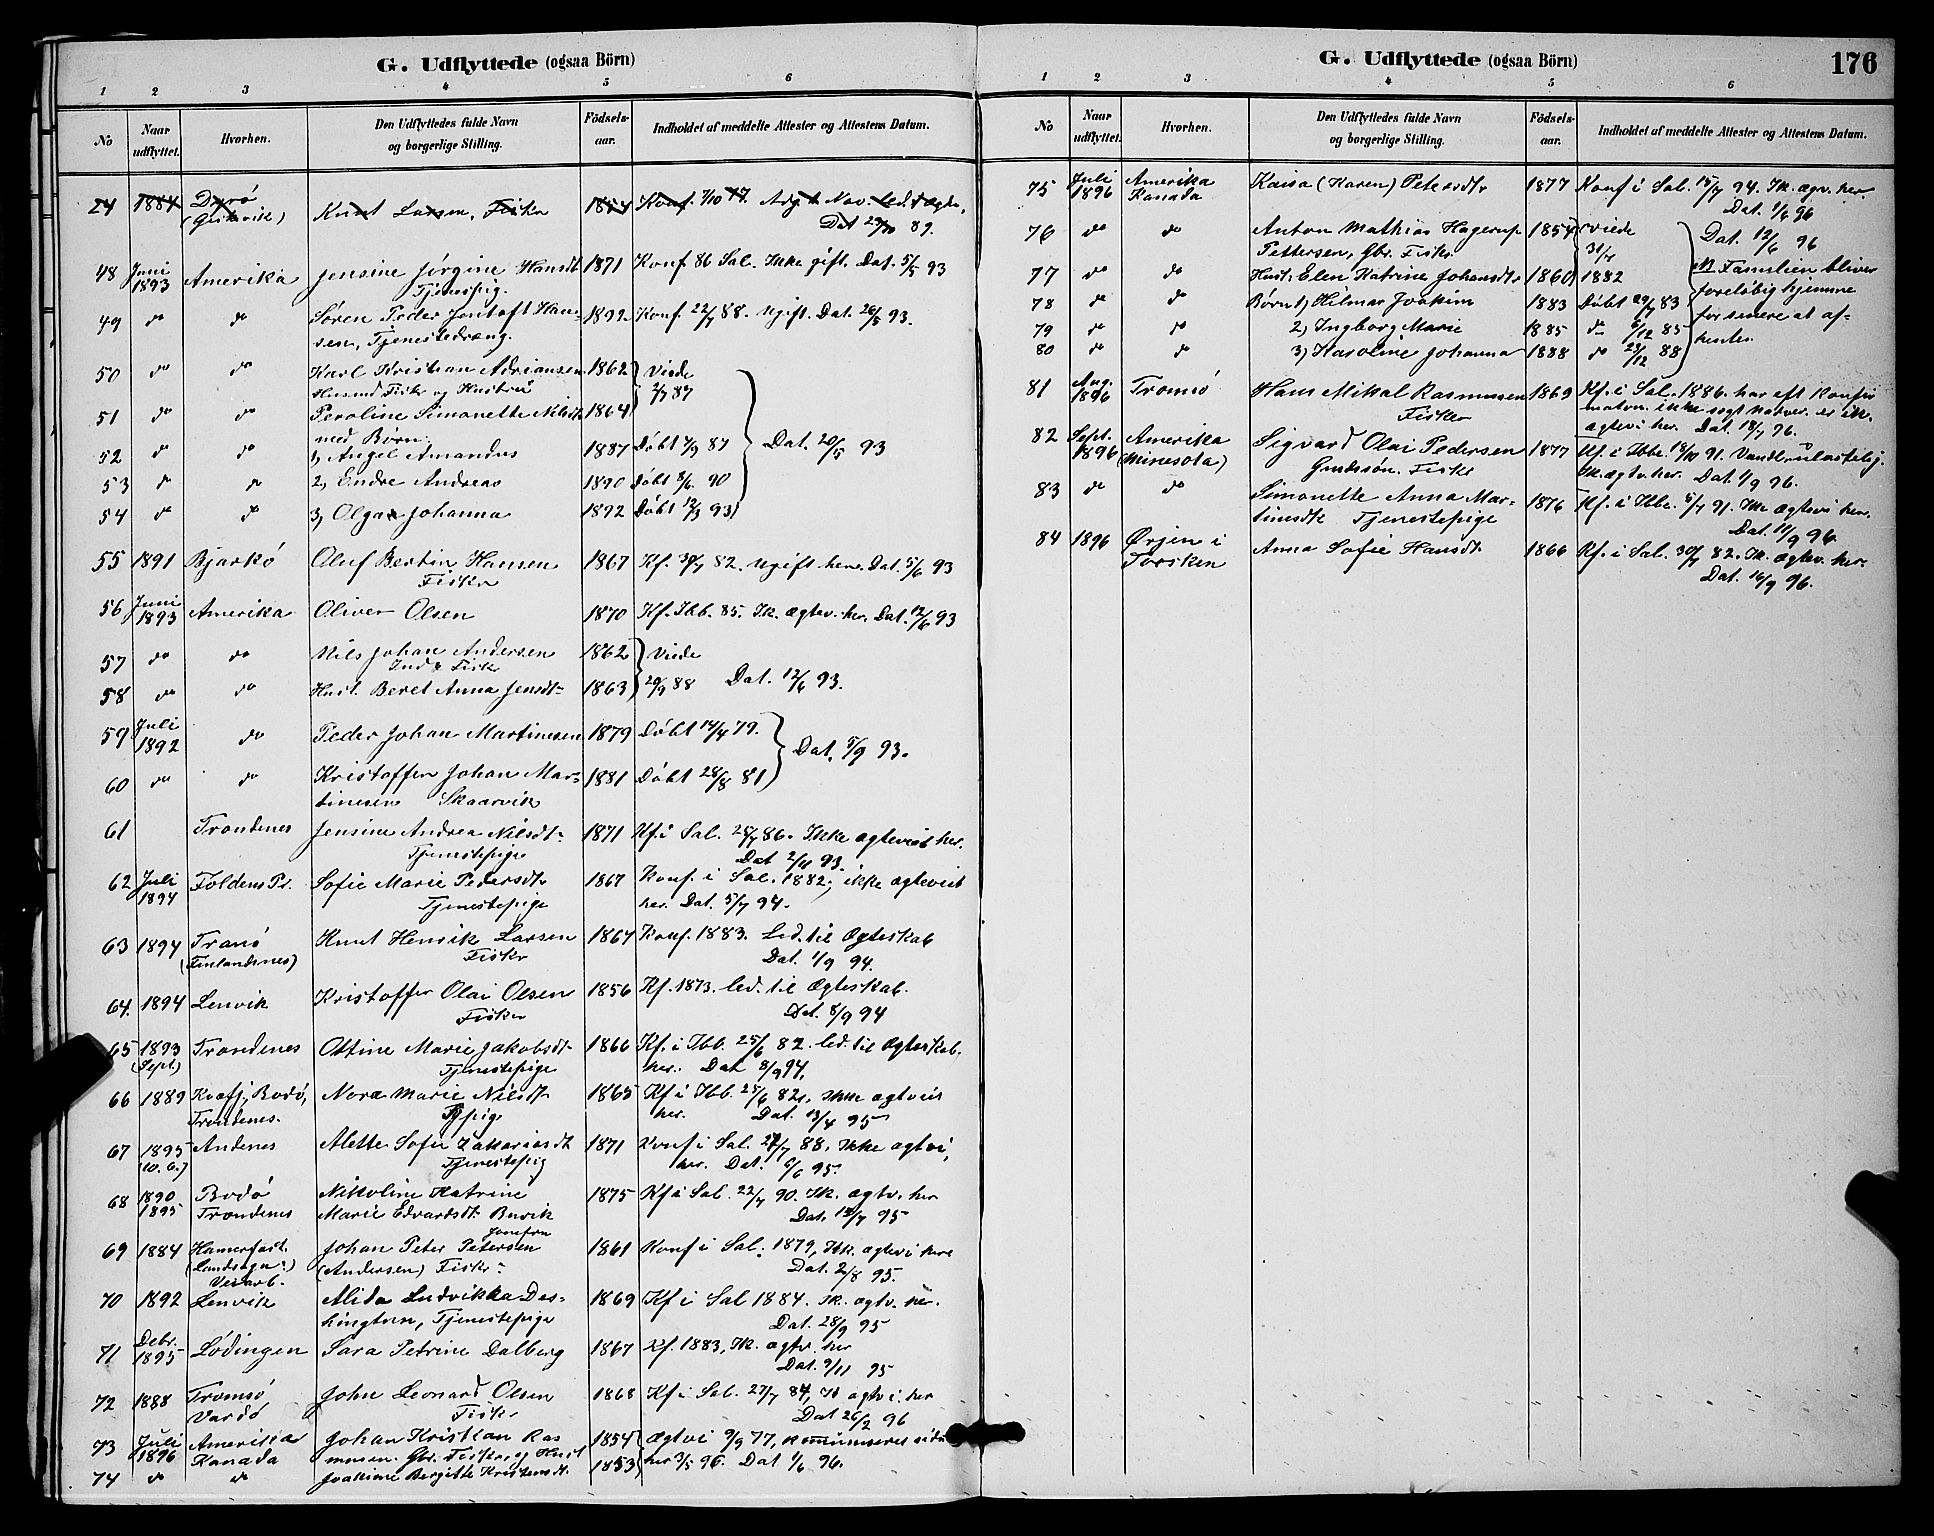 G. Udflyttede (ogsaa Börn)
1 2 3 4 5 6
No Naar udflyttet. Hvorhen. Den Udflyttedes fulde Navn og borgerlige Stilling. Födsels-aar. Indholdet af meddelte Attester og Attestens Datum.
24 1884 Knut Larsen, Fisker 1854 Konf. 7/10
Dat 29/10 89.
48 Juni 1893 Amerika Jensine Jörgine Hansdt 1871 Konf 86 Sal. Ikke gift. Dat. 5/5 93
Tjenestepig.
49 do do Søren Peder Jentoft Han- Konf. 22/7 88. Ugift. Dat. 26/5 93.
sen, Tjenestedreng.
50 do do Karl Kristian Adriansen 1862 Viede
Husmd Fisker og Hustru 2/7 87
51 do do Peroline Simonette Nilsdt 1864
med Børn:
52 do do 1) Angel Amandus 1887 Döbt 4/9 87 Dat. 20/5 93
53 do do 2) Endre Andreas 1890 Döbt 8/6 90
54 do do 3) Olga Johanna 1892 Döbt 12/3 93
55 1891 Bjarkö Oluf Bertin Hansen 1867 Kf. 30/7 82. Ugift here. Dat. 5/6 93
Fisker
56 Juni 1893 Amerika Oliver Olsen 1870 Kf. Ibb. 85. Ik. ægtev. her. Dat. 12/6 93
57 do do Nils Johan Andersen 1862 Viede
Ind. & Fisker
58 do do Hust. Beret Anna Jensdt 1863 20/9 88 Dat. 12/6 93.
59 Juli 1892 do Peder Johan Martinesen 1879 Döbt 14/4 79.
Dat. 5/9 93.
60 do do Kristoffer Johan Mar- 1881 Döbt 28/8 81
tinesen Skaarvik
61 Trondenes Jensine Andrea Nilsdt 1871 Kf. i Sal. 25/7 86. Ikke ægteviet her.
Tjenestepige Dat 2/11 93.
62 Juli 1894 Foldens Pr. Sofie Marie Pedersdt 1867 Konf. i Sal. 1882; ikke ægteviet
Tjenestepige her. Dat. 5/7 94.
63 1894 Tranö Knut Henrik Larsen 1864 Konf. 1883. Led. til Ægteskab
(Finlandsnes) Fisker Dat. 1/9 94.
64. 1894 Lenvik Kristoffer Olai Olsen 1856 Kf. 1873. led. til Ægteskab.
Fisker Dat. 8/9 94
65 1893 Trondenes Ottine Marie Jakobsdt 1866 Kf. i Ibb. 25/6 82. led. til Ægteskab.
(Sept.) Tjenestepige her. Dat 8/9 94.
66 1889 Kvæfj, Bodö, Nora Marie Nilsdt 1865 Kf i Ibb. 25/6 82, ikke ægteviet
Trondenes. Tjpige her. Dat. 13/4 95
67 1895 Andenes Alette Sofie Zakariasdt 1871 Konf i Sal. 27/7 88. Ikke ægtvi,
Tjenestepig her. Dat. 6/6 95.
68 1890 Bodö Nikoline Katrine 1875 Kf i Sal. 22/7 90. Ik. ægtv. her
1895 Trondenes Marie Edvardsdt Buvik Dat. 12/7 95
Jomfru
69 1884 Hamerfest Johan Peter Petersen 1861 Konf i Sal. 1879, Ik. ægtevi here
(Landsogn) (Andersen) Fisker Dat. 2/8 95.
70 1892 Lenvik Alida Ludvikka Des- 1869 Kf i Sal 1884. Ik. ægtv. her.
hington, Tjenestepige Dat. 28/9 95
71 Debr. 1895 Lödingen Sara Petrine Dalberg 1867 Kf. 1883, Ik. ægtv. her
Dat. 9/11 95
72 1888 Tromsö John Leonard Olsen 1868 Kf i Sal. 27/7 84, Ik ægtvi. her
Vardö Fisker Dat 26/2 96
73 Juli 1896 Amerika Johan Kristian Ras 1854 Ægtvi 9/9 77, kommuniseres sidst
Kanada mussen. Gbr. Fisker og Hust her 3/5 96. Dat 1/6 96.
74 do do Joakime Bergitte Kristensdt 1853
G. Udflyttede (ogsaa Börn) 176
1 2 3 4 5 6
No Naar udflyttet. Hvorhen. Den Udflyttedes fulde Navn og borgerlige Stilling. Födsels-aar. Indholdet af meddelte Attester og Attestens Datum.
75 Juli 1896 Amerika Kaisa (Karen) Petersdt 1877 Konf i Sal. 15/7 94. Ik. ægv. her
Kanada Dat. 1/6 96
76 do do Anton Mathias Hagerup 1854 viede Dat. 12/6 96
Pettersen, Gbr. Fisker
77 do do Hust. Elen Katrine Johansdt 1860 1882 Familien bliver
78 do do Børn 1) Hilmar Joakim 1883 Döbt 29/7 83 foreløbig hjemme
79 do do 2) Ingborg Marie 1885 do 6/12 85 for senere at af-
80 do do 3) Karoline Johanna 1888 do 23/12 88 hentes.
81 Aug. 1896 Tromsö Hans Mikal Rasmussen 1869 Kf. i Sal. 1886. har eft Konfir
Fisker mation ikke søgt Natver. er ik.
ægtevi her. Dat. 18/7 96.
82 Sept. 1896 Amerika Sigvard Olai Pedersen 1877 Kf. i Ibbe. 18/10 91. Vandl. ulastelig.
(Minesota) Gmdssøn. Fisker Ik. ægtv. her. Dat. 1/9 96.
83 do do Simonette Anna Mar- 1876 Kf. i Ibbe. 5/7 91. Ikke ægtevi her.
tinesdt Tjenestepige Dat. 11/9 96.
84 1896 Ørjen i Anna Sofie Hansdt 1866 Kf. i Sal. 30/7 82. Ik. ægtev. her.
Torsken Dat. 16/9 96.